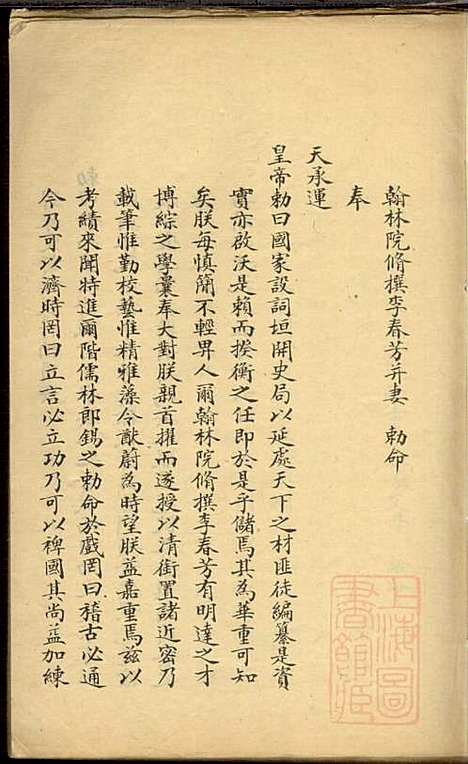 翰林院脩撰李春芳并妻　勅命
奉
天承運
皇帝勅曰國家設詞垣開史局以延處天下之材匪徒編纂是資
實亦啟沃是賴而揆衡之任即於是乎儲焉其為華重可知
矣朕每慎簡不輕畀人爾翰林院脩撰李春芳有明達之才
博綜之學曩奉大對朕親首擢而遂授以清銜置諸近密乃
載筆惟勤校藝惟精雅藻令猷蔚為時望朕益嘉重焉茲以
考績來聞特進爾階儒林郎錫之勅命於戲罔曰稽古必通
今乃可以濟時罔曰立言必立功乃可以裨國其尚益加練
上海圖
書館藏